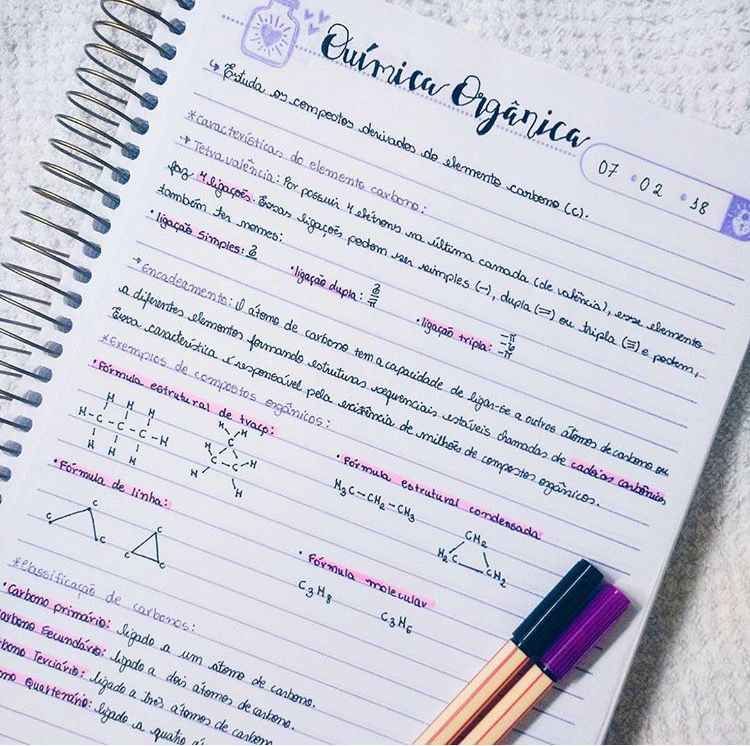 Química Orgânica
07 • 02 • 18
↳ Estuda os compostos derivados do elemento carbono (C).
*Características do elemento carbono:
→ Tetravalência: Por possuir 4 elétrons na última camada (de valência), esse elemento
faz 4 ligações. Essas ligações podem ser simples (−), dupla (=) ou tripla (≡) e podem,
também ter nomes:
• ligação simples: 6
• ligação dupla: 6 π
• ligação tripla: −π −6 −π
→ Encadeamento: O átomo de carbono tem a capacidade de ligar-se a outros átomos de carbono ou
a diferentes elementos formando estruturas sequenciais estáveis chamadas de cadeias carbônicas
Essa característica é responsável pela existência de milhões de compostos orgânicos.
*Exemplos de compostos orgânicos:
• Fórmula estrutural de traço:
H H H
H-C-C-C-H
H H H
H H
C
H C C H
H H
• Fórmula estrutural condensada
H₃C-CH₂-CH₃
CH₂
H₂C CH₂
• Fórmula de linha:
C C C
C C C
• Fórmula molecular
C₃H₈
C₃H₆
*Classificação de carbonos:
• Carbono primário: ligado a um átomo de carbono.
arbono Secundário: ligado a dois átomos de carbono.
bono Terciário: ligado a três átomos de carbono
ono Quaternário: ligado a quatro á